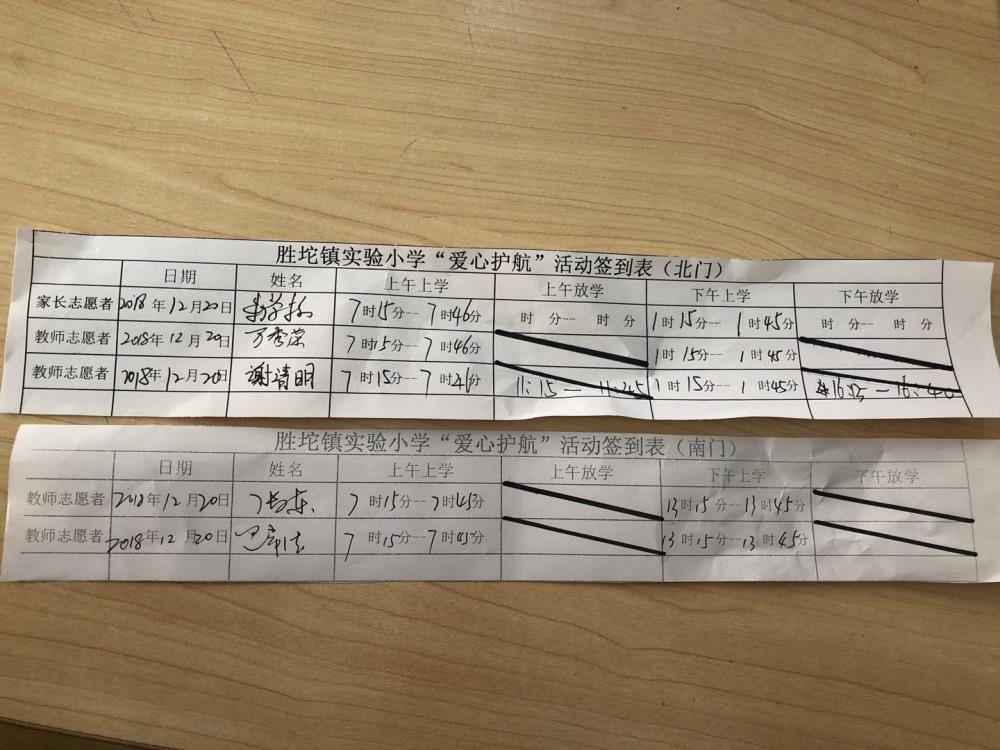 胜坨镇实验小学“爱心护航”活动签到表（北门）
日期 姓名 上午上学 上午放学 下午上学 下午放学
家长志愿者 2018年12月20日 7时15分--7时46分 时 分-- 时 分 1时15分--1时45分 时 分-- 时 分
教师志愿者 2018年12月20日 万秀荣 7时15分--7时46分 1时15分--1时45分
教师志愿者 2018年12月20日 谢清明 7时15分--7时46分 11:15—11:45 1时15分--1时45分 16:15—16:40
胜坨镇实验小学“爱心护航”活动签到表（南门）
日期 姓名 上午上学 上午放学 下午上学 下午放学
教师志愿者 2018年12月20日 7时15分--7时45分 13时15分--13时45分
教师志愿者 2018年12月20日 7时15分--7时45分 13时15分--13时45分